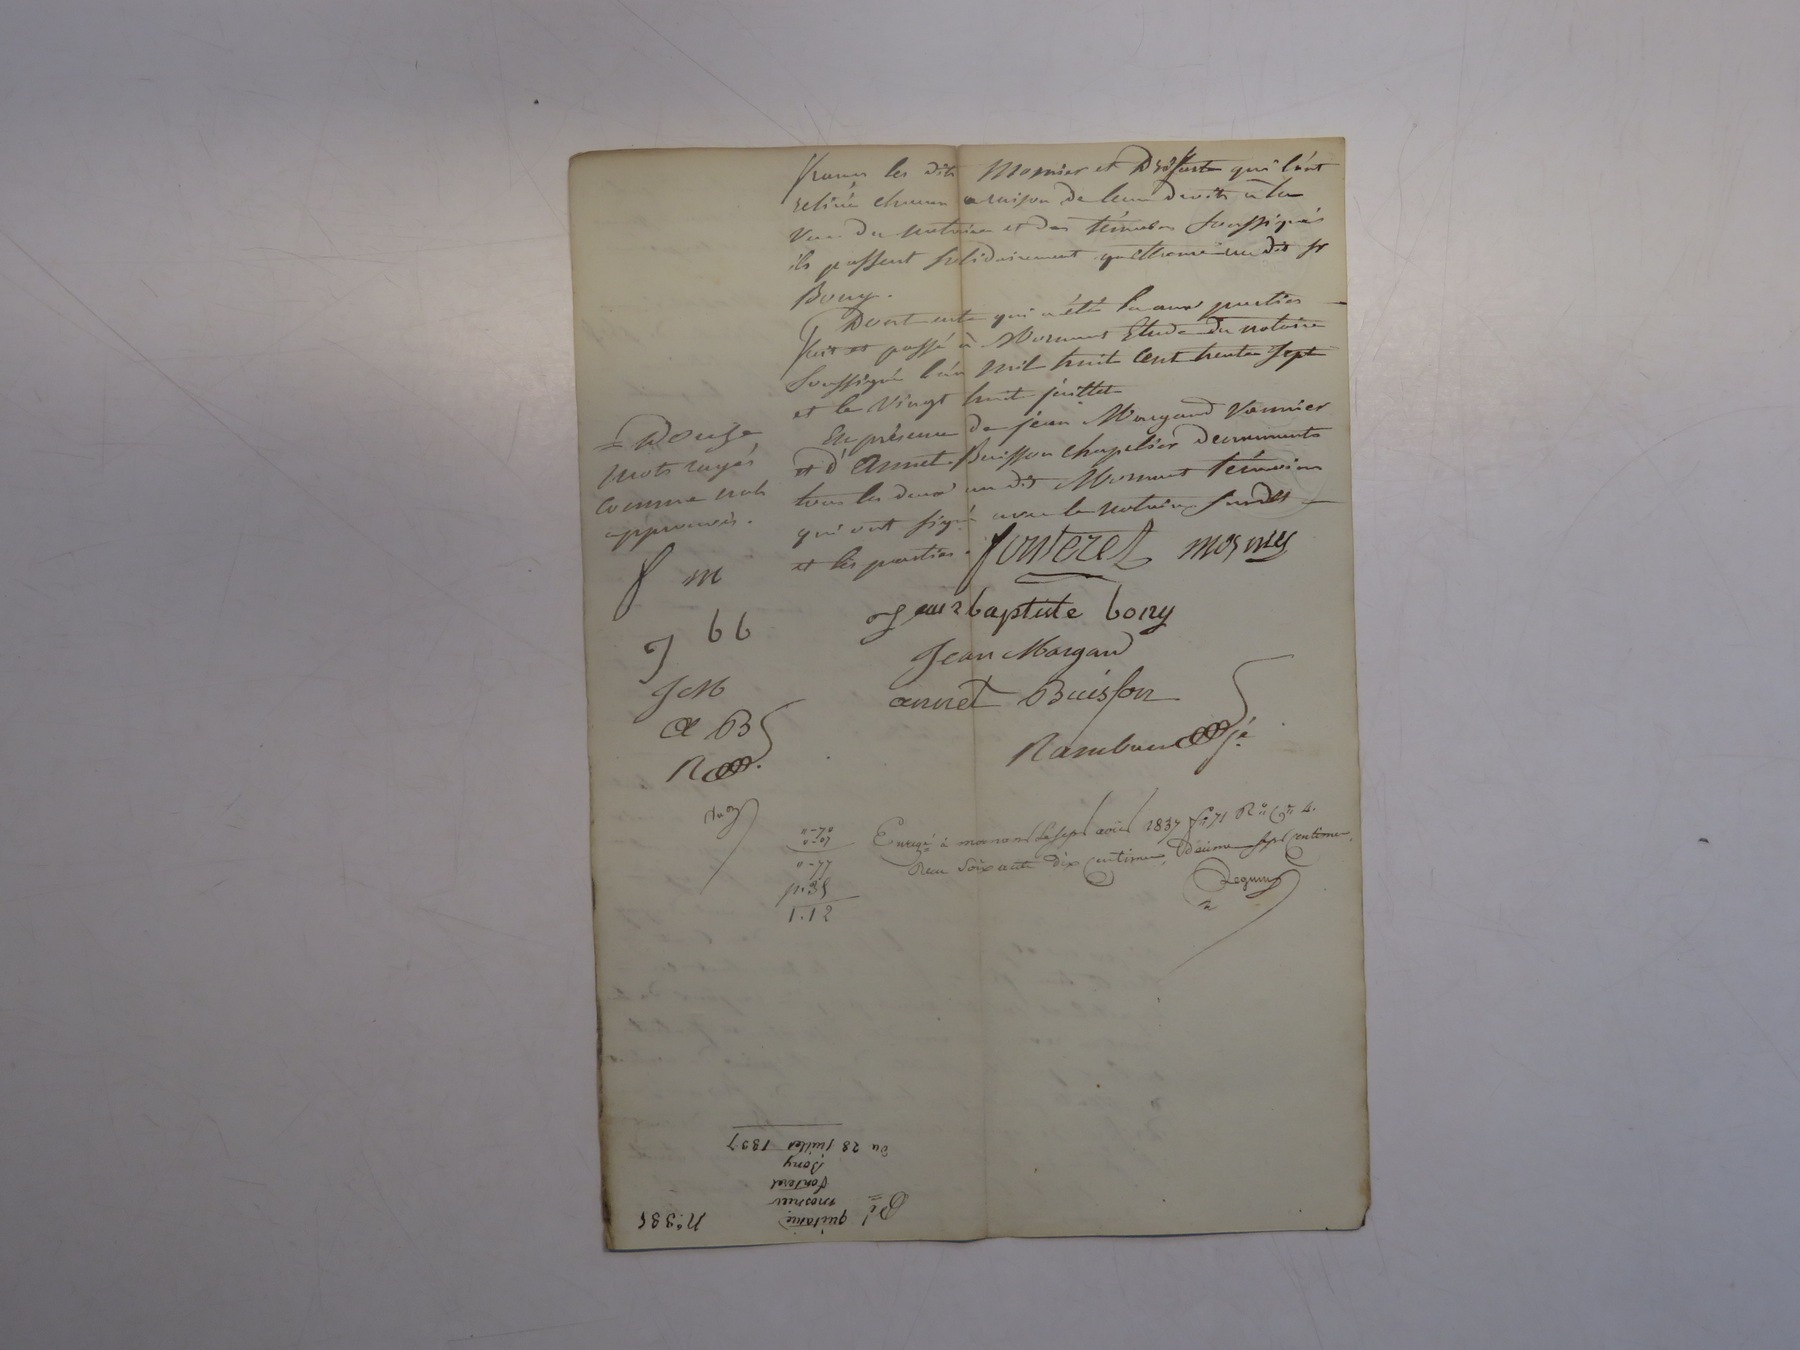 francs les dits Mornier et qui l'ont
retiré chacun a raison de leur droits à la
vue du notaire et des témoins soussignés
ils passent solidairement quittance au dit sr
Bony.
Dont acte qui a été lu aux parties
fait et passé à Mornant Etude du notaire
soussigné l'an mil huit cent trente sept
et le vingt huit juillet
En présence de jean Margand vannier
et d'Annet Buisson chapelier demeurants
tous les deux au dit Mornant témoins
qui ont signé avec le notaire susdit
et les parties.
= Douze
mots rayés
comme nuls
approuvés.
fonteret mornier
Jean baptiste bony
Jean Margand
annet Buisson
f m
J b b
J M
a B
R
Enregé à mornant le sept août 1837 fo 71 Ro Ce 4.
Reçu soixante dix centimes, Décime sept centimes.
0-70
0-07
0-77
p. 35
1.12
No 335
quitance
mornier
fonteret
Bony
Du 28 juillet 1837